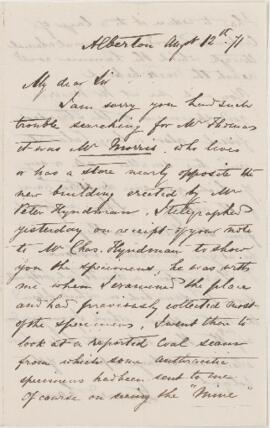 Alberton Augt 12th. 71
My dear Sir
I am sorry you had such
trouble searching for Mr Thomas
it was Mr Morris. who lives
or has a store nearly opposite the
new building erected by Mr
Peter Hyndman, I telegraphed
yesterday on receipt of your note
to Mr Chas. Hyndman to show
you the specimens, he was with
me when I examined the place
and had previously collected most
of the specimens, I went then to
look at a reported Coal seam
from which some authentic
specimens had been sent to me
Of course on seeing the "Mine"